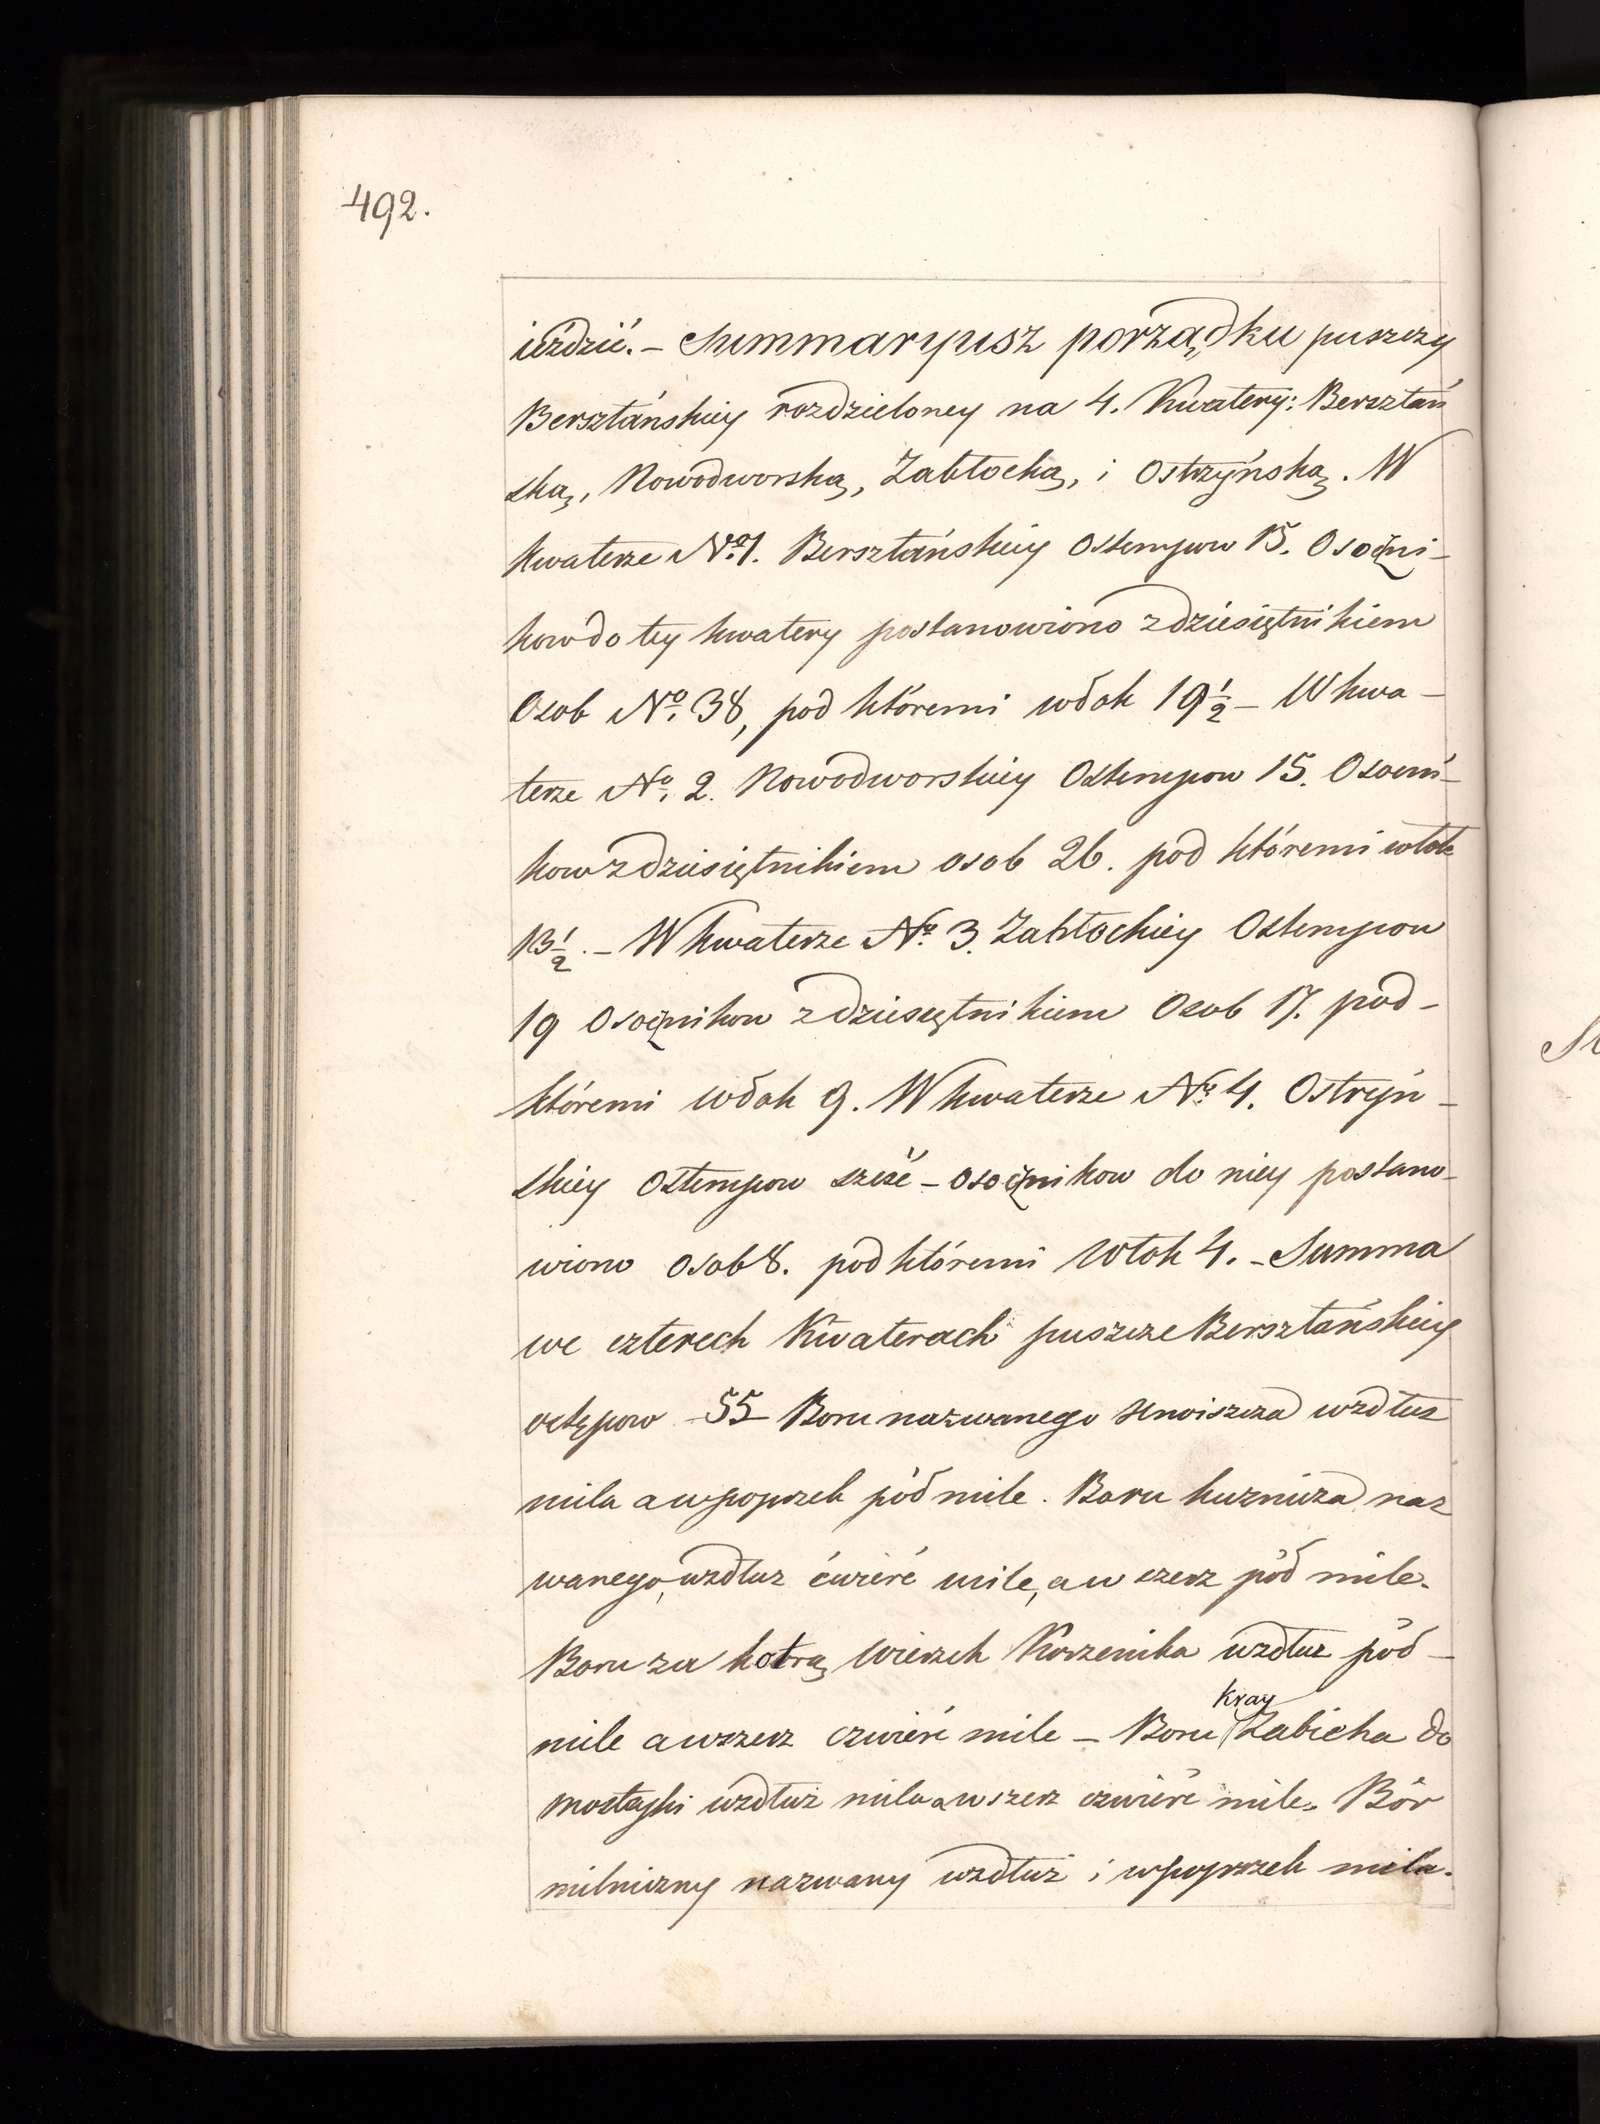 492.
ieździć. – Summaryusz porządku puszczy
Bersztańskiey rozdzieloney na 4. Kwatery: Bersztań
ską, Nowodworską, Zabłocką, i Ostrzyńską. W
kwaterze No. 1. Bersztańskiey Ostempow 15. Osoczni-
kow do tey kwatery postanowiono z dziesiętnikiem
Osob No. 38, pod któremi włok 19 1/2 – W kwa-
terze No. 2. Nowodworskiey Ostempow 15. Osocni-
kow z dziesiętnikiem osob 26. pod któremi włok
13 1/2. – W kwaterze No. 3. Zabłockiey Ostempow
19 Osocznikow z dziesiętnikiem Osob 17. pod-
któremi włok 9. W kwaterze No. 4. Ostryń-
skiey Ostempow sześć – osocznikow do niey postano-
wiono osob 8. pod któremi włok 4. – Summa
we czterech Kwaterach puszcze Bersztańskiey
ostępow 55 – Boru nazwanego wzdłuz
mila a wpoprzek pół mile. Boru kuznica naz
wanego, wzdłuz ćwierć mile, a w szerz pół mile.
Boru za kotrą wierzch Korzenika wzdłuz pół –
mile a wszerz czwierć mile – Boru Kray Zabicha do
mostayki wzdłuż mila a wszerz czwierć mile. Bór
milniczny nazwany wzdłuż i wpoprzek mila.